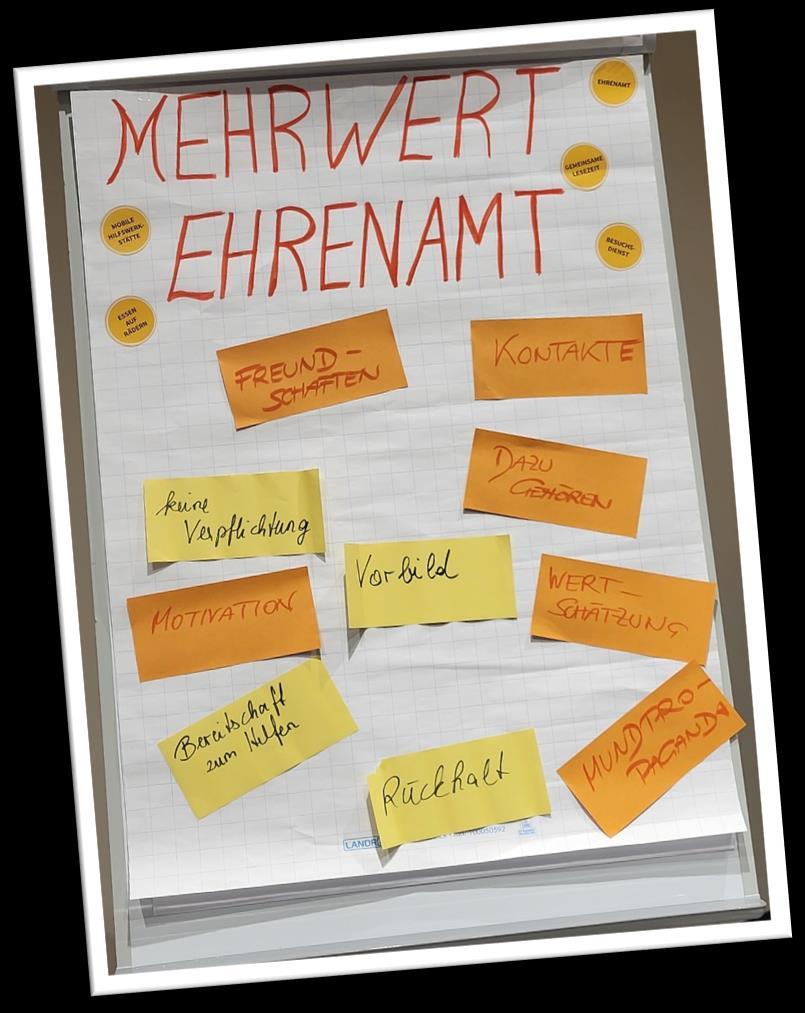 MEHRWERT
EHRENAMT
EHRENAMT
GEMEINSAME
LESEZEIT
MOBILE
HILFSWERK-
STÄTTE
BESUCHS-
DIENST
ESSEN
AUF
RÄDERN
FREUND-
SCHAFTEN
KONTAKTE
DAZU
GEHÖREN
keine
Verpflichtung
Vorbild
MOTIVATION
WERT-
SCHÄTZUNG
Bereitschaft
zum Helfen
MUNDPRO-
PAGANDA
Rückhalt
LANDR